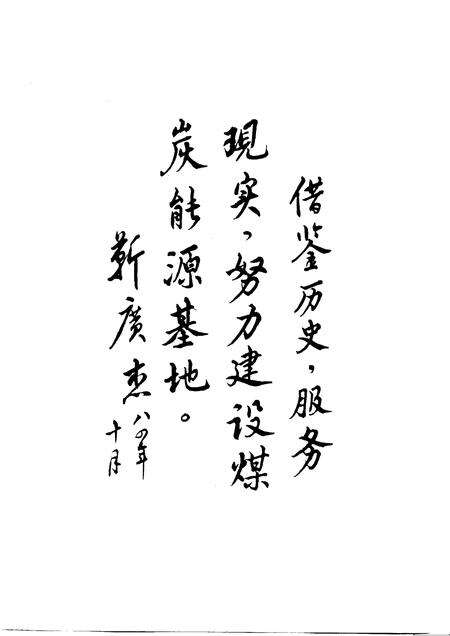 借鉴历史，服务
現实，努力建设煤
炭能源基地。
靳廣杰八四年
十月